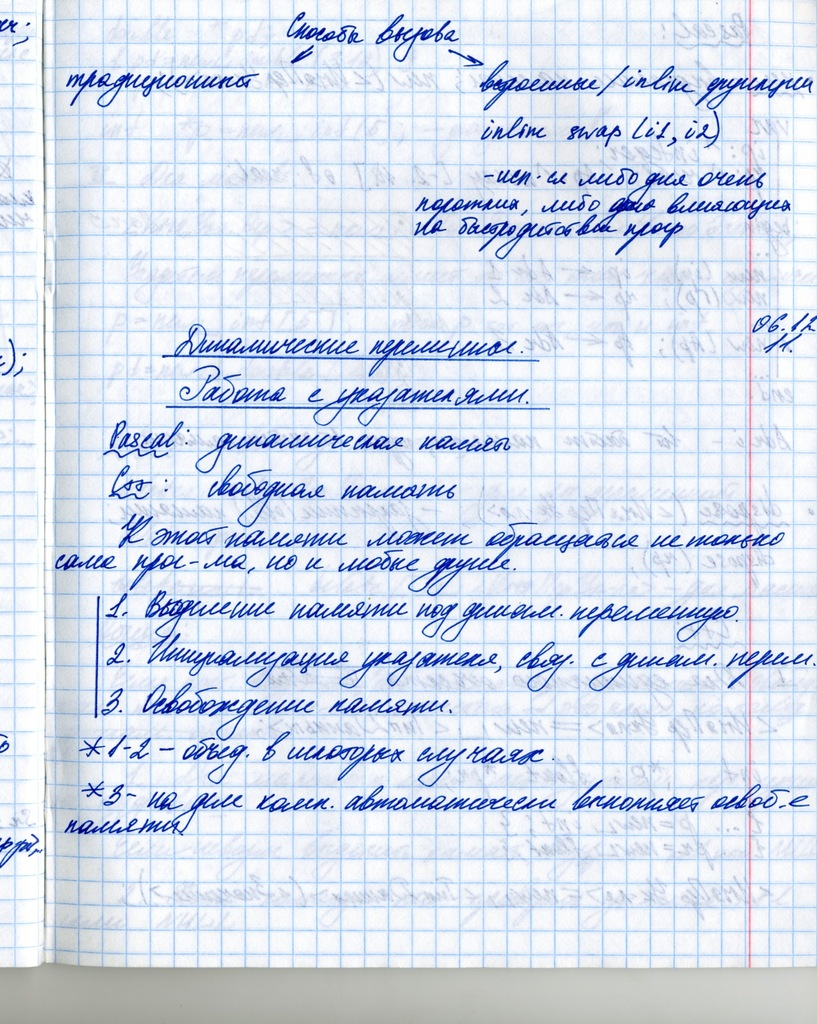 Способы вызова
традиционный
встроенные / inline функции
inline swap (i1, i2)
- исп-ся либо для очень
коротких, либо для влияющих
на быстродействие прогр
06.12
11.
Динамические переменные.
Работа с указателями.
Pascal: динамическая память
C++: свободная память
К этой памяти может обращаться не только
сама прог-ма, но и любые другие.
1. Выделение памяти под динам. переменную.
2. Инициализация указателя, связ. с динам. перем.
3. Освобождение памяти.
* 1-2 – объед. в некоторых случаях.
* 3 - на деле комп. автоматически выполняет освоб-е
памяти